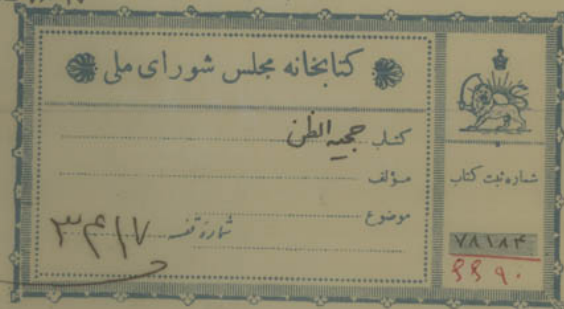 کتابخانه مجلس شورای ملی
کتاب حجیه الظن
مؤلف
موضوع
شماره قفسه ۳۴۱۷
شماره ثبت کتاب
۷۸۱۸۴